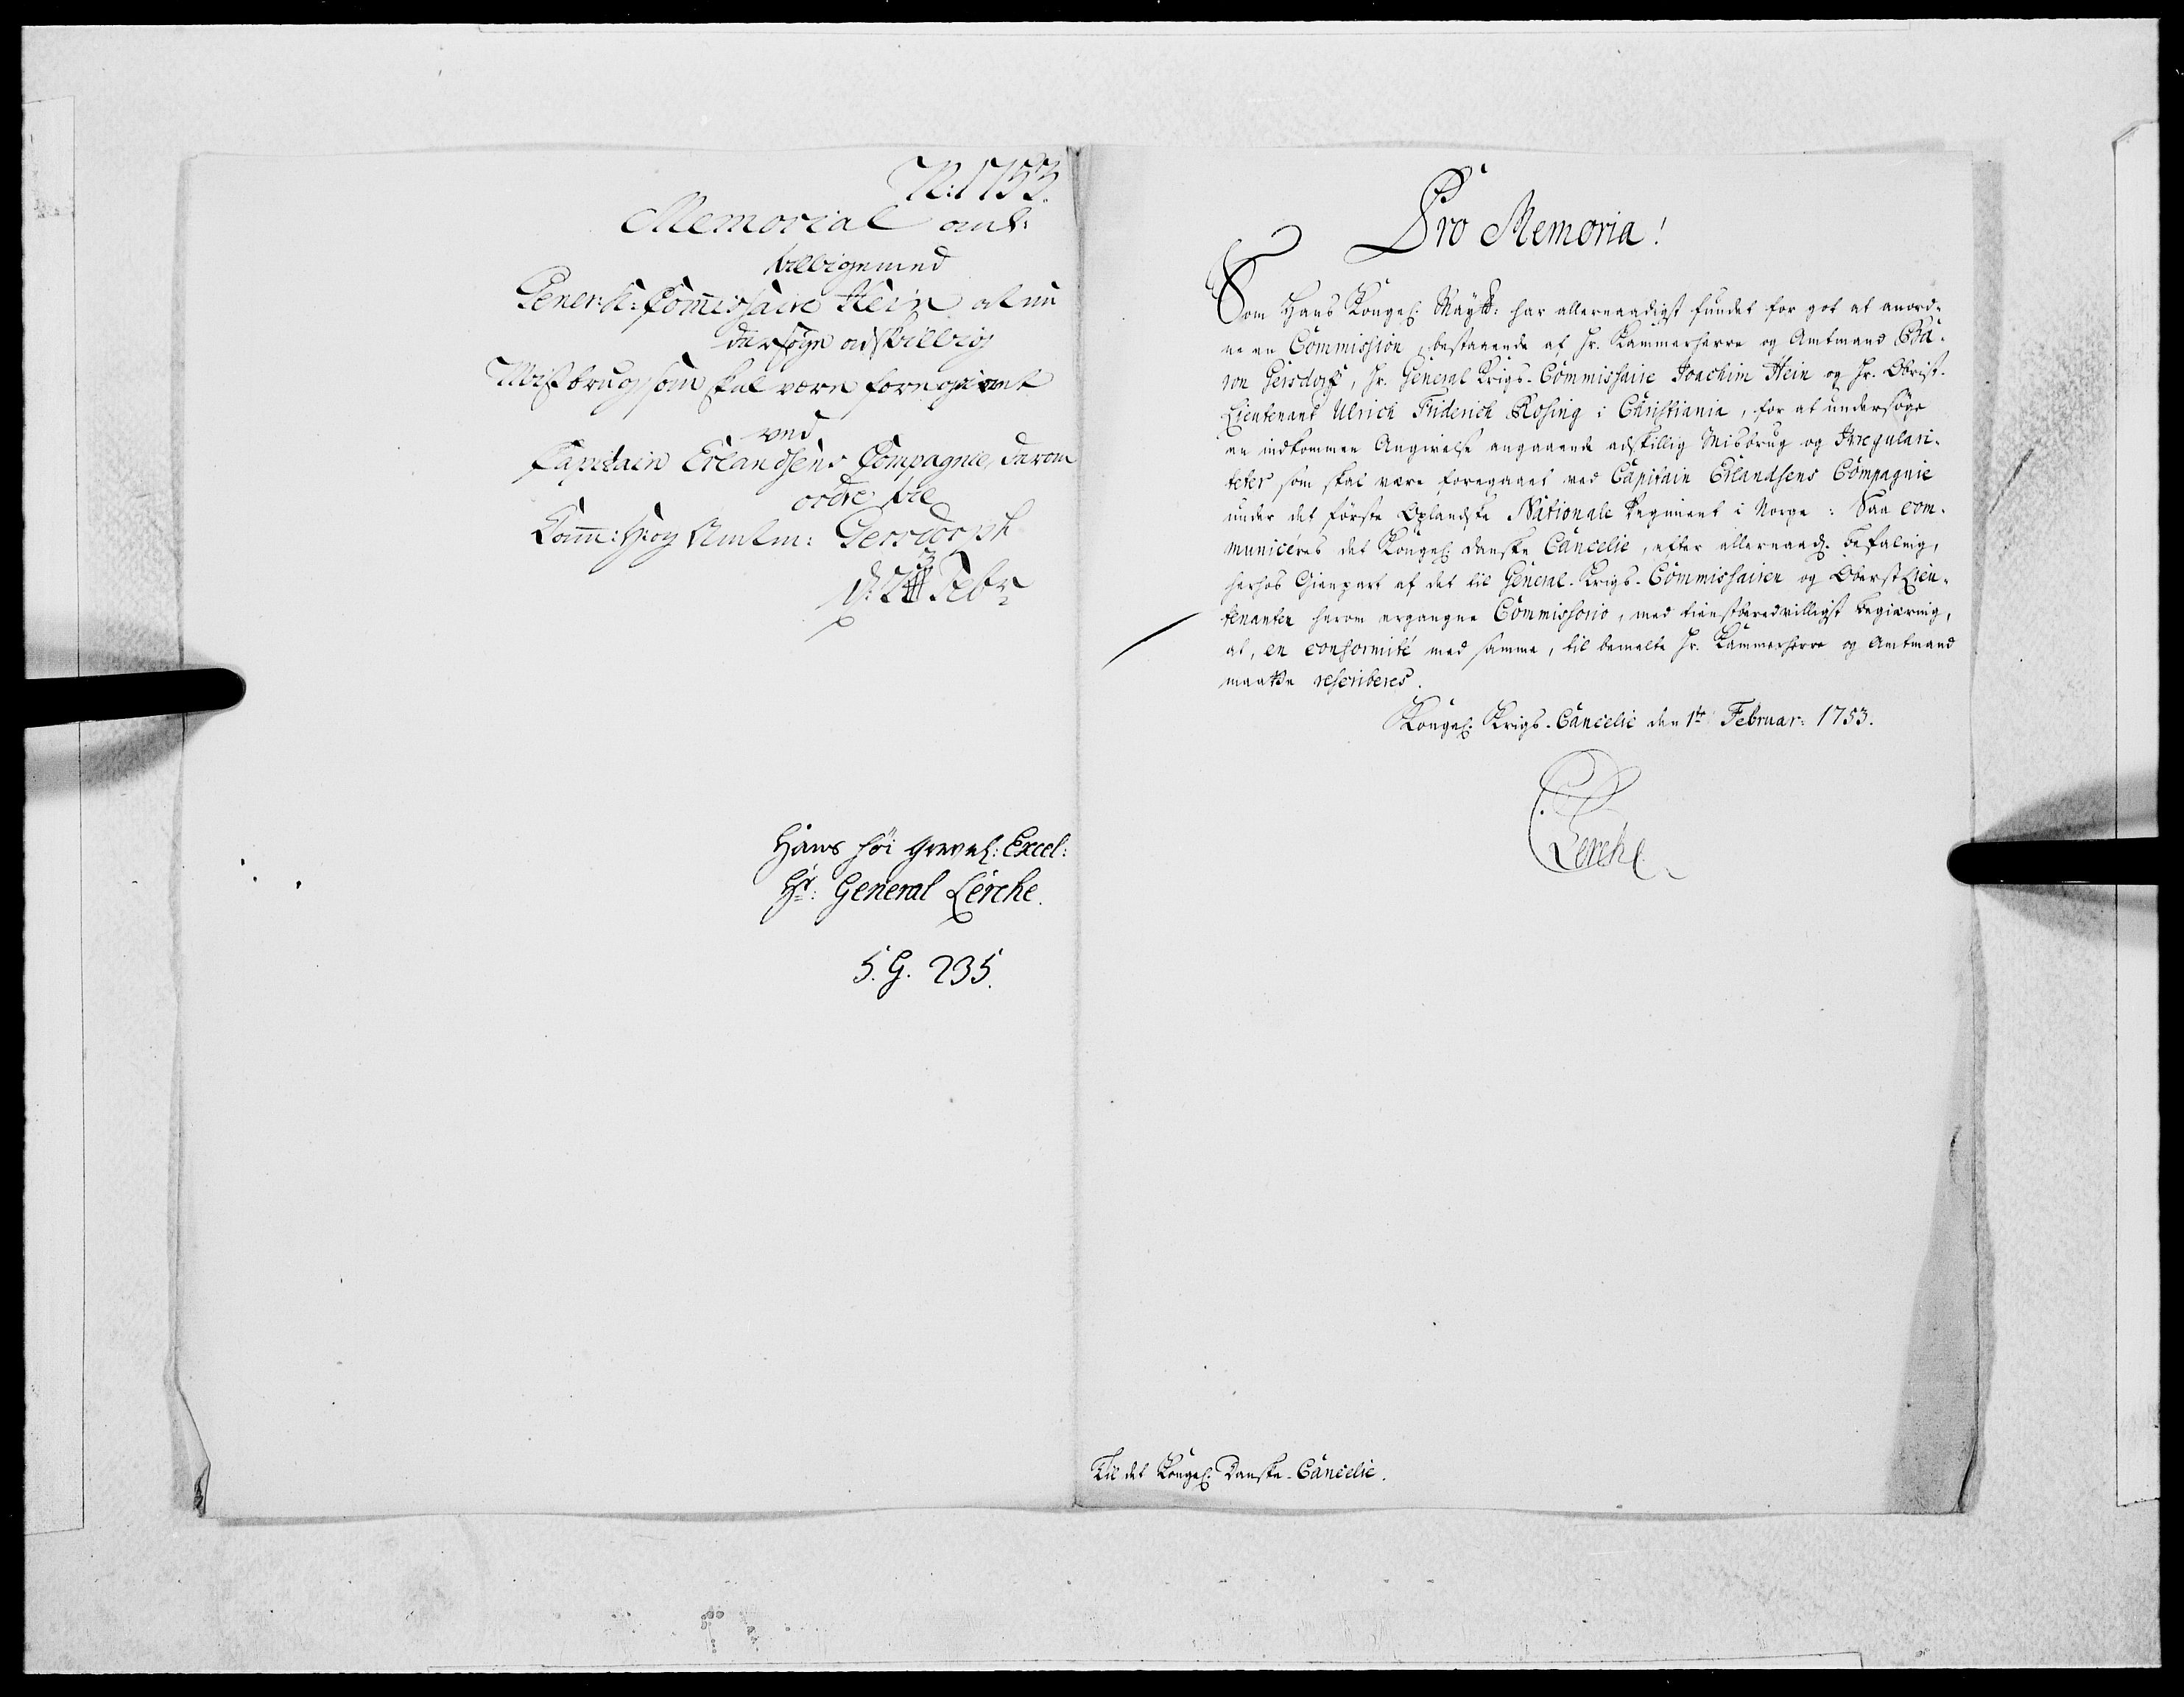 N: 1753.
Memorial anl:
tilligemed
Gener:K:Commissaire Hein at un
dersøge adskillig
Misbrug som skal være foregaaet
ved
Capitain Erlandsens Compagnie, derom
ordre til
Kam:H: og Amtm: Gersdorph
d: 23 Febr
Hans høi Grevel: Excel:
Hr: General Lerche.
5. G. 235.
Pro Memoria!
Som Hans Kongel: Maytt: har allernaadigst fundet for got at anord-
ne en Commission, bestaaende af Hr. Kammerherre og Amtmand Ba-
ron Gersdorff, Hr. General Krigs-Commissaire Joachim Hein og Hr. Obrist-
Lieutenant Ulrich Friderich Rosing i Christiania, for at undersøge
en indkommen Angivelse angaaende adskillig Misbrug og Irregulari-
teter som skal være foregaaet ved Capitain Erlandsens Compagnie
under det første Oplandske Nationale Regiment i Norge: Saa com-
municeres det Kongel: danske Cancelie, efter allernaad: befaling,
herhos Gienpart af det til General-Krigs-Commissairen og Oberst Lieu-
tenanten herom ergangne Commissorio, med tienstberedvilligst begiæring,
at, en conformité med samme, til bemelte Hr. Kammerherre og Amtmand
maatte rescriberes.
Kongel: Krigs-Cancelie den 1te Februar: 1753.
Lerche
Til det Kongel: Danske-Cancelie.